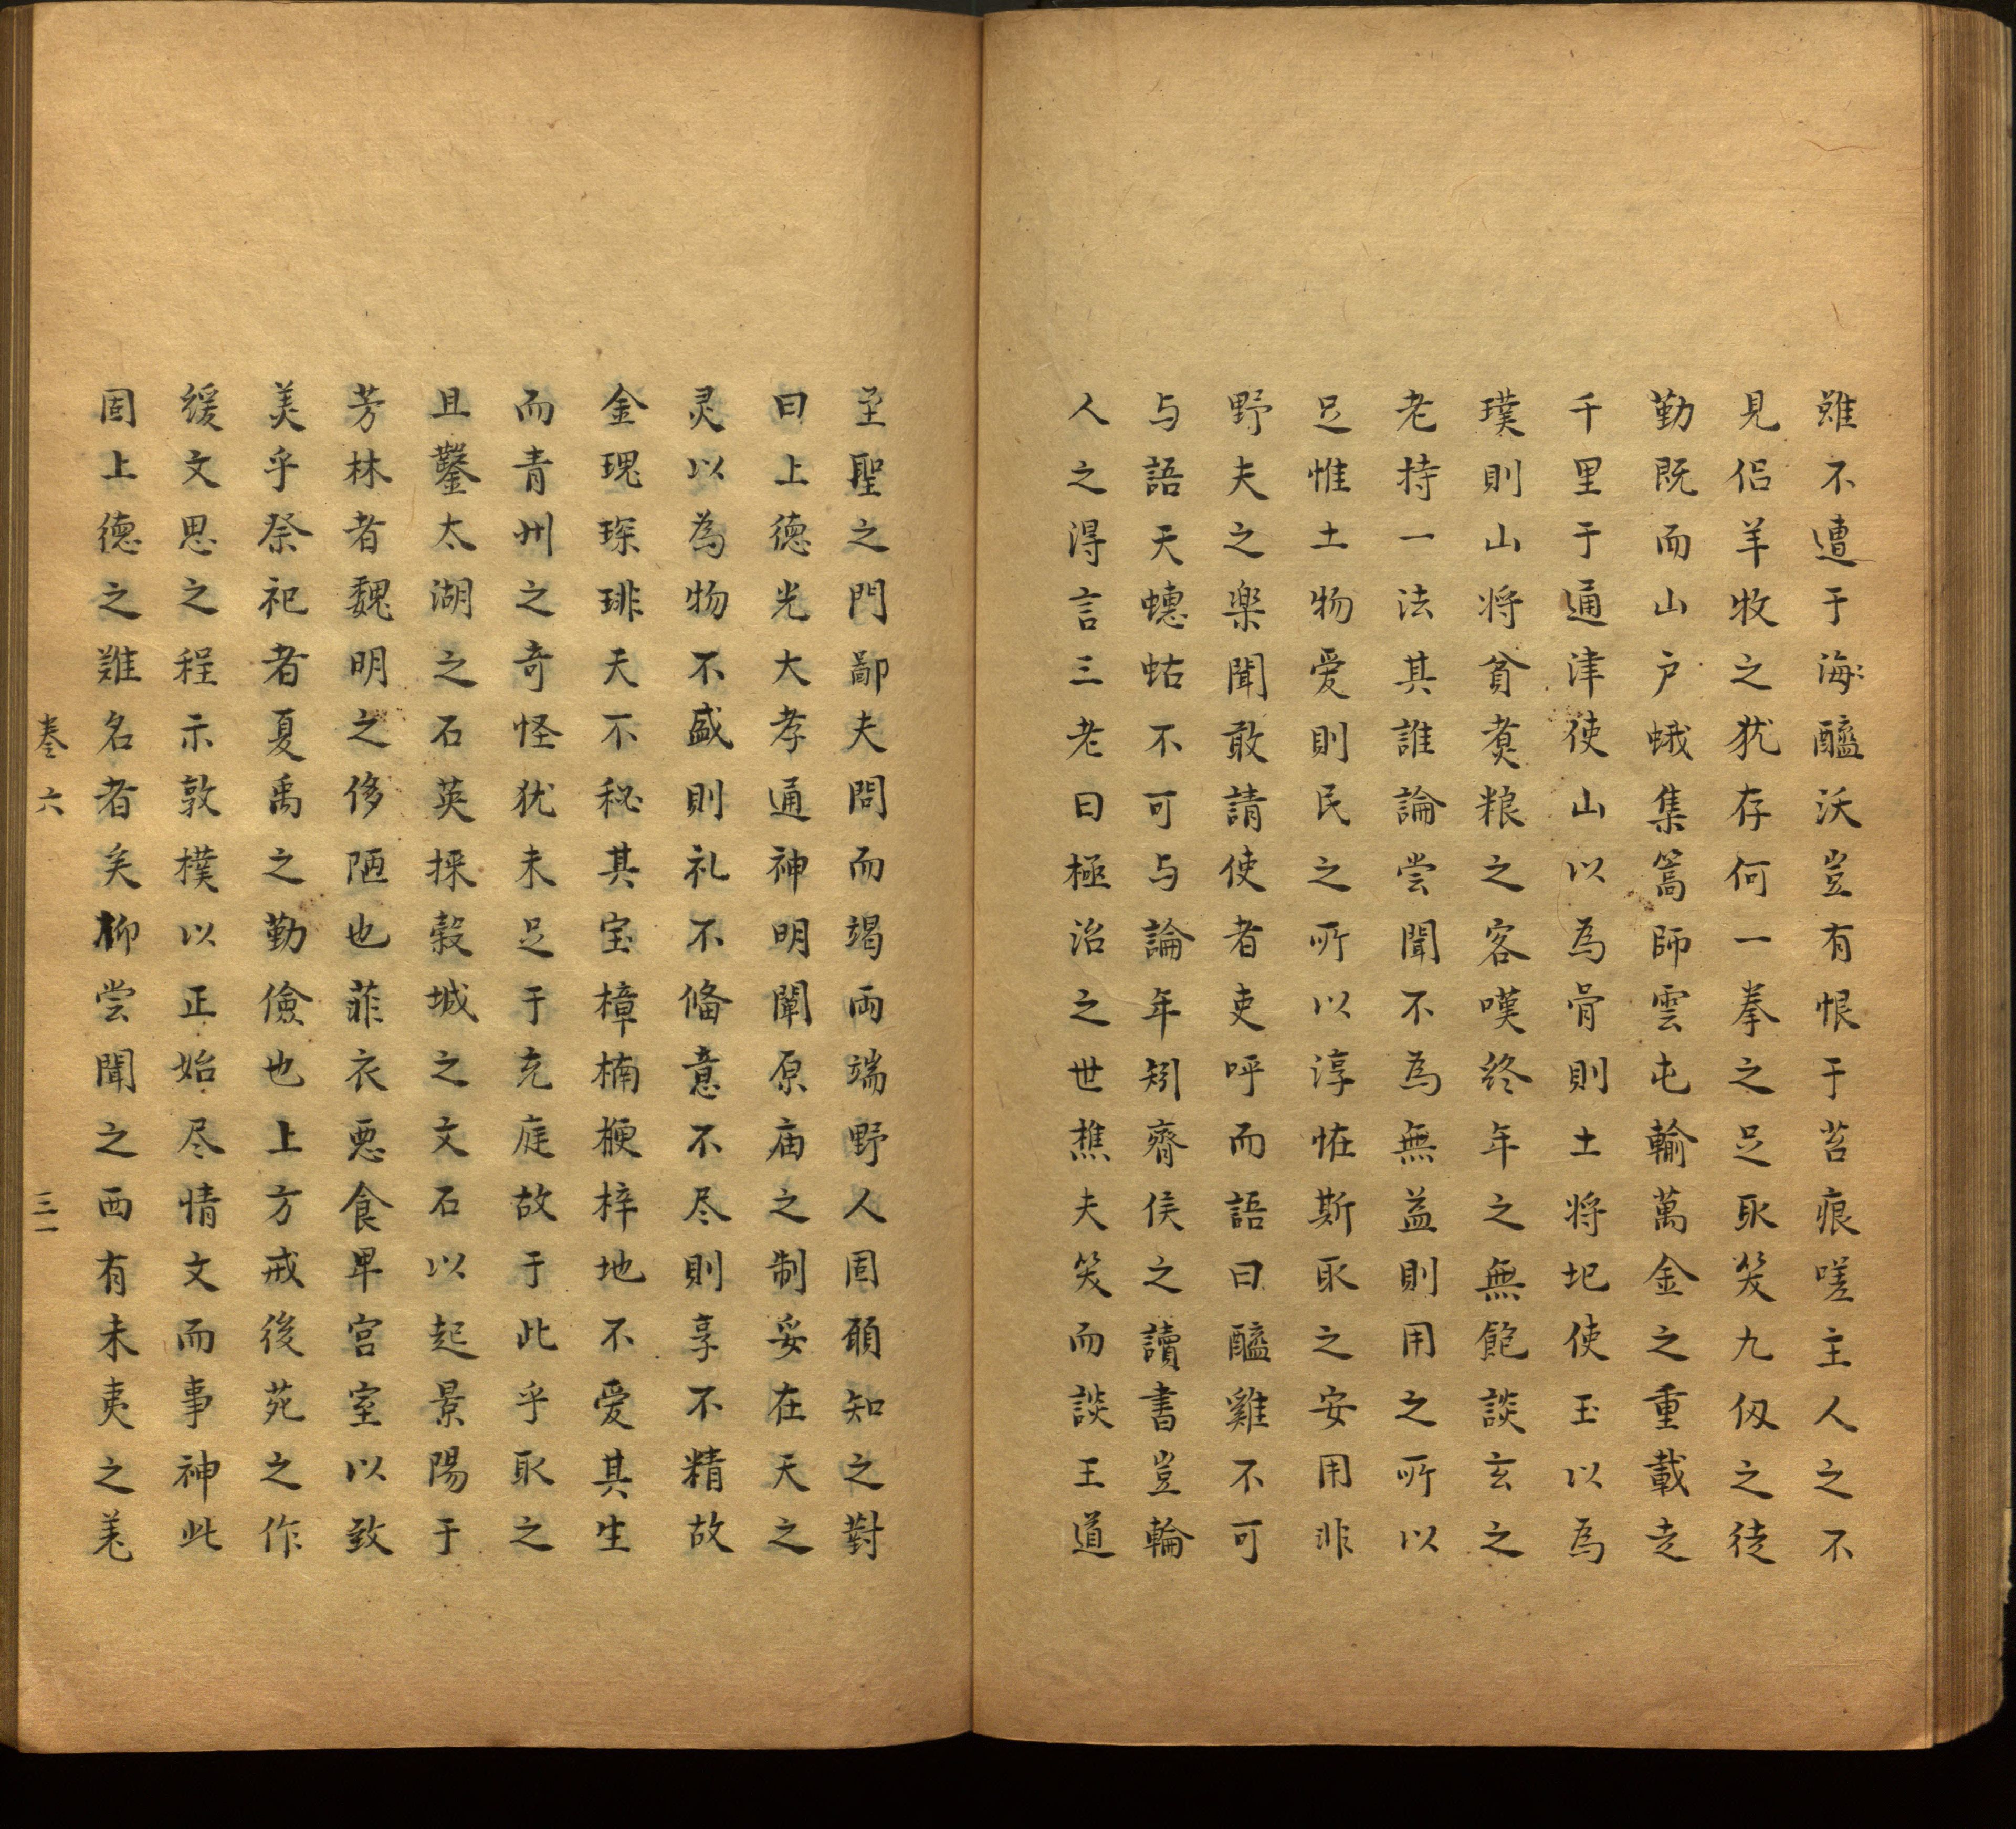 雖不遭于海醯沃豈有恨于苔痕嗟主人之不
見侣羊牧之犹存何一拳之足取笑九仭之徒
勤既而山户蛾集篙師雲屯輸萬金之重載走
千里于通津使山以為骨則土将圮使玉以為
璞則山将貧賫粮之客嘆終年之無飽談玄之
老持一法其誰論尝聞不為無益則用之所以
足惟土物爱則民之所以淳恠斯取之安用非
野夫之楽聞敢請使者吏呼而語曰醯雞不可
与語天蟪蛄不可与論年矧齊侯之讀書豈輪
人之得言三老曰極治之世樵夫笑而談王道
至聖之門鄙夫問而竭両端野人固頋知之對
曰上徳光大孝通神明闡原庙之制妥在天之
灵以為物不盛則礼不俻意不尽則享不精故
金瑰琛琲天不秘其宝樟楠梗梓地不爱其生
而青州之奇怪犹未足于充庭故于此乎取之
且鑿太湖之石英採穀城之文石以起景陽于
芳林者魏明之侈陋也菲衣悪食卑宫室以致
美乎祭祀者夏禹之勤儉也上方戒後苑之作
缓文思之程示敦樸以正始尽情文而事神此
固上徳之難名者矣柳尝聞之西有未夷之羌
卷六
三一